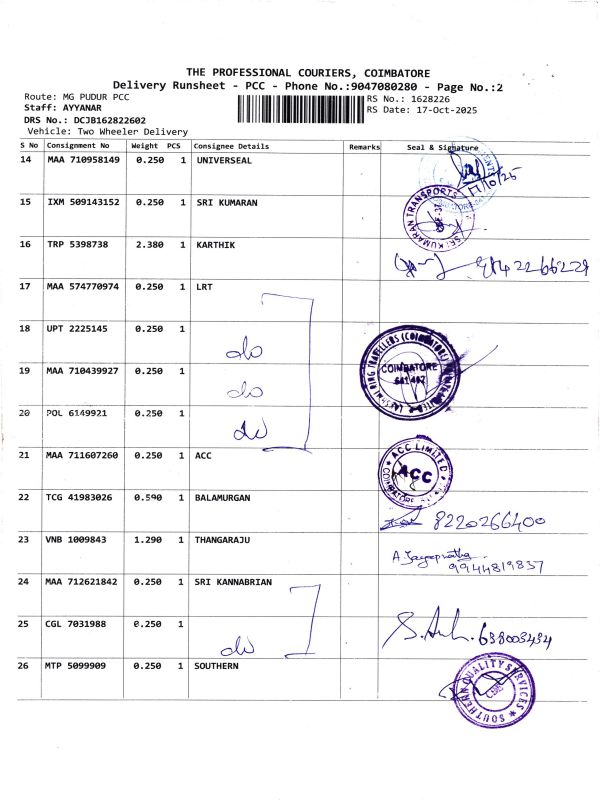 THE PROFESSIONAL COURIERS, COIMBATORE
Delivery Runsheet - PCC - Phone No.:9047080280 - Page No.:2
Route: MG PUDUR PCC
Staff: AYYANAR
DRS No.: DCJB162822602
Vehicle: Two Wheeler Delivery
RS No.: 1628226
RS Date: 17-Oct-2025
S No Consignment No Weight PCS Consignee Details Remarks Seal & Signature
14 MAA 710958149 0.250 1 UNIVERSEAL
17/10/25
15 IXM 509143152 0.250 1 SRI KUMARAN
SRI KUMARAN TRANSPORTS
16 TRP 5398738 2.380 1 KARTHIK
17 MAA 574770974 0.250 1 LRT
18 UPT 2225145 0.250 1
do
19 MAA 710439927 0.250 1
do
20 POL 6149921 0.250 1
do
COIMBATORE
641 407
21 MAA 711607260 0.250 1 ACC
ACC LIMITED
ACC
COIMBATORE
22 TCG 41983026 0.590 1 BALAMURGAN
8220266400
23 VNB 1009843 1.290 1 THANGARAJU
9944819837
24 MAA 712621842 0.250 1 SRI KANNABRIAN
25 CGL 7031988 0.250 1
do
638003434
26 MTP 5099909 0.250 1 SOUTHERN
SOUTHERN QUALITY SERVICES
CBE